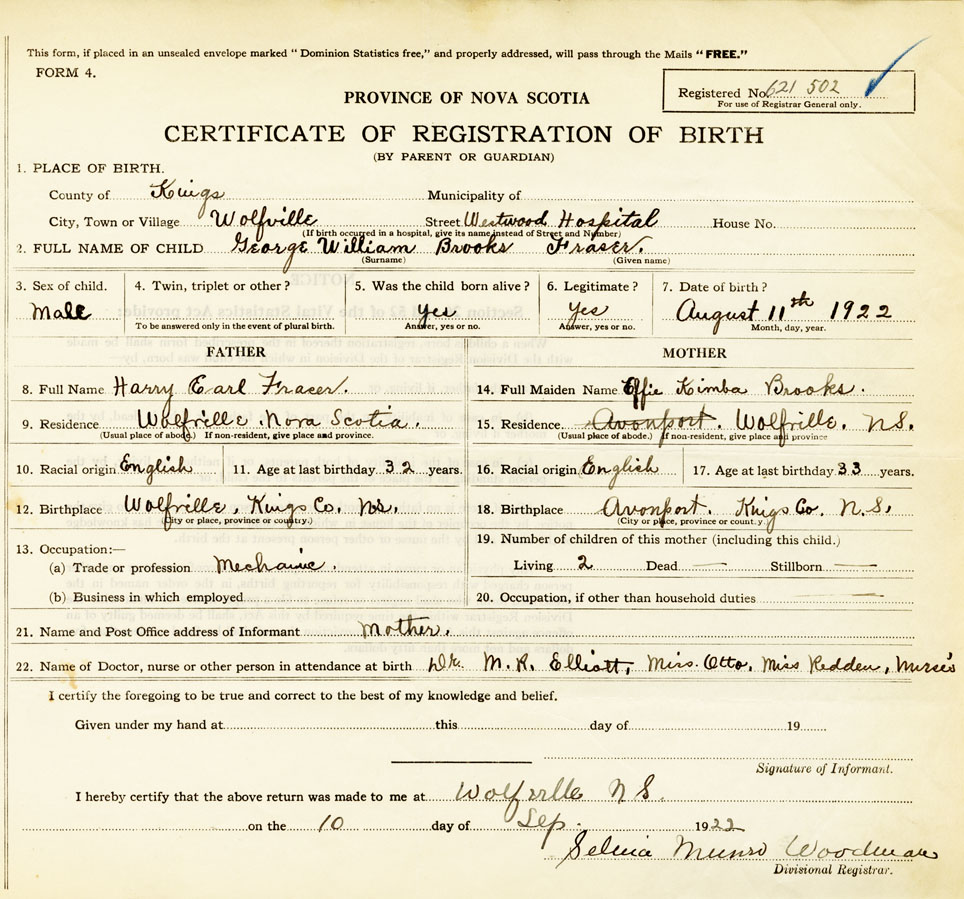 This form, if placed in an unsealed envelope marked "Dominion Statistics free," and properly addressed, will pass through the Mails "FREE."
FORM 4.
Registered No. 621 502
For use of Registrar General only.
PROVINCE OF NOVA SCOTIA
CERTIFICATE OF REGISTRATION OF BIRTH
(BY PARENT OR GUARDIAN)
1. PLACE OF BIRTH.
County of Kings Municipality of
City, Town or Village Wolfville Street Westwood Hospital House No.
(If birth occurred in a hospital, give its name instead of Street and Number)
2. FULL NAME OF CHILD George William Brooks Fraser.
(Surname) (Given name)
3. Sex of child. 4. Twin, triplet or other? 5. Was the child born alive? 6. Legitimate? 7. Date of birth?
Male Yes Yes August 11th 1922
To be answered only in the event of plural birth. Answer, yes or no. Answer, yes or no. Month, day, year.
FATHER MOTHER
8. Full Name Harry Earl Fraser. 14. Full Maiden Name Effie Kimba Brooks.
9. Residence Wolfville. Nova Scotia. 15. Residence Avonport. Wolfville. N.S.
(Usual place of abode.) If non-resident, give place and province. (Usual place of abode.) If non-resident, give place and province
10. Racial origin English 11. Age at last birthday 32 years. 16. Racial origin English 17. Age at last birthday 33 years.
12. Birthplace Wolfville, Kings Co. N.S. 18. Birthplace Avonport. Kings Co. N.S.
(City or place, province or country.) (City or place, province or country.)
13. Occupation:— 19. Number of children of this mother (including this child.)
(a) Trade or profession Mechanic. Living 2 Dead — Stillborn —
(b) Business in which employed 20. Occupation, if other than household duties —
21. Name and Post Office address of Informant Mother.
22. Name of Doctor, nurse or other person in attendance at birth Dr. M. R. Elliott, Miss. Otto, Miss Redden, Nurses
I certify the foregoing to be true and correct to the best of my knowledge and belief.
Given under my hand at this day of 19
Signature of Informant.
I hereby certify that the above return was made to me at Wolfville N S.
on the 10 day of Sep. 1922
Selmia Munro Woodman
Divisional Registrar.